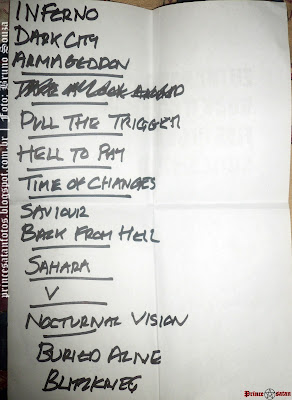 INFERNO
DARK CITY
ARMAGEDDON
PULL THE TRIGGER
HELL TO PAY
TIME OF CHANGES
SAVIOUR
BACK FROM HELL
SAHARA
V
NOCTURNAL VISION
BURIED ALIVE
BLITZKRIEG
princesatanfotos.blogspot.com.br | Foto: Bruno Souza
Prince satan